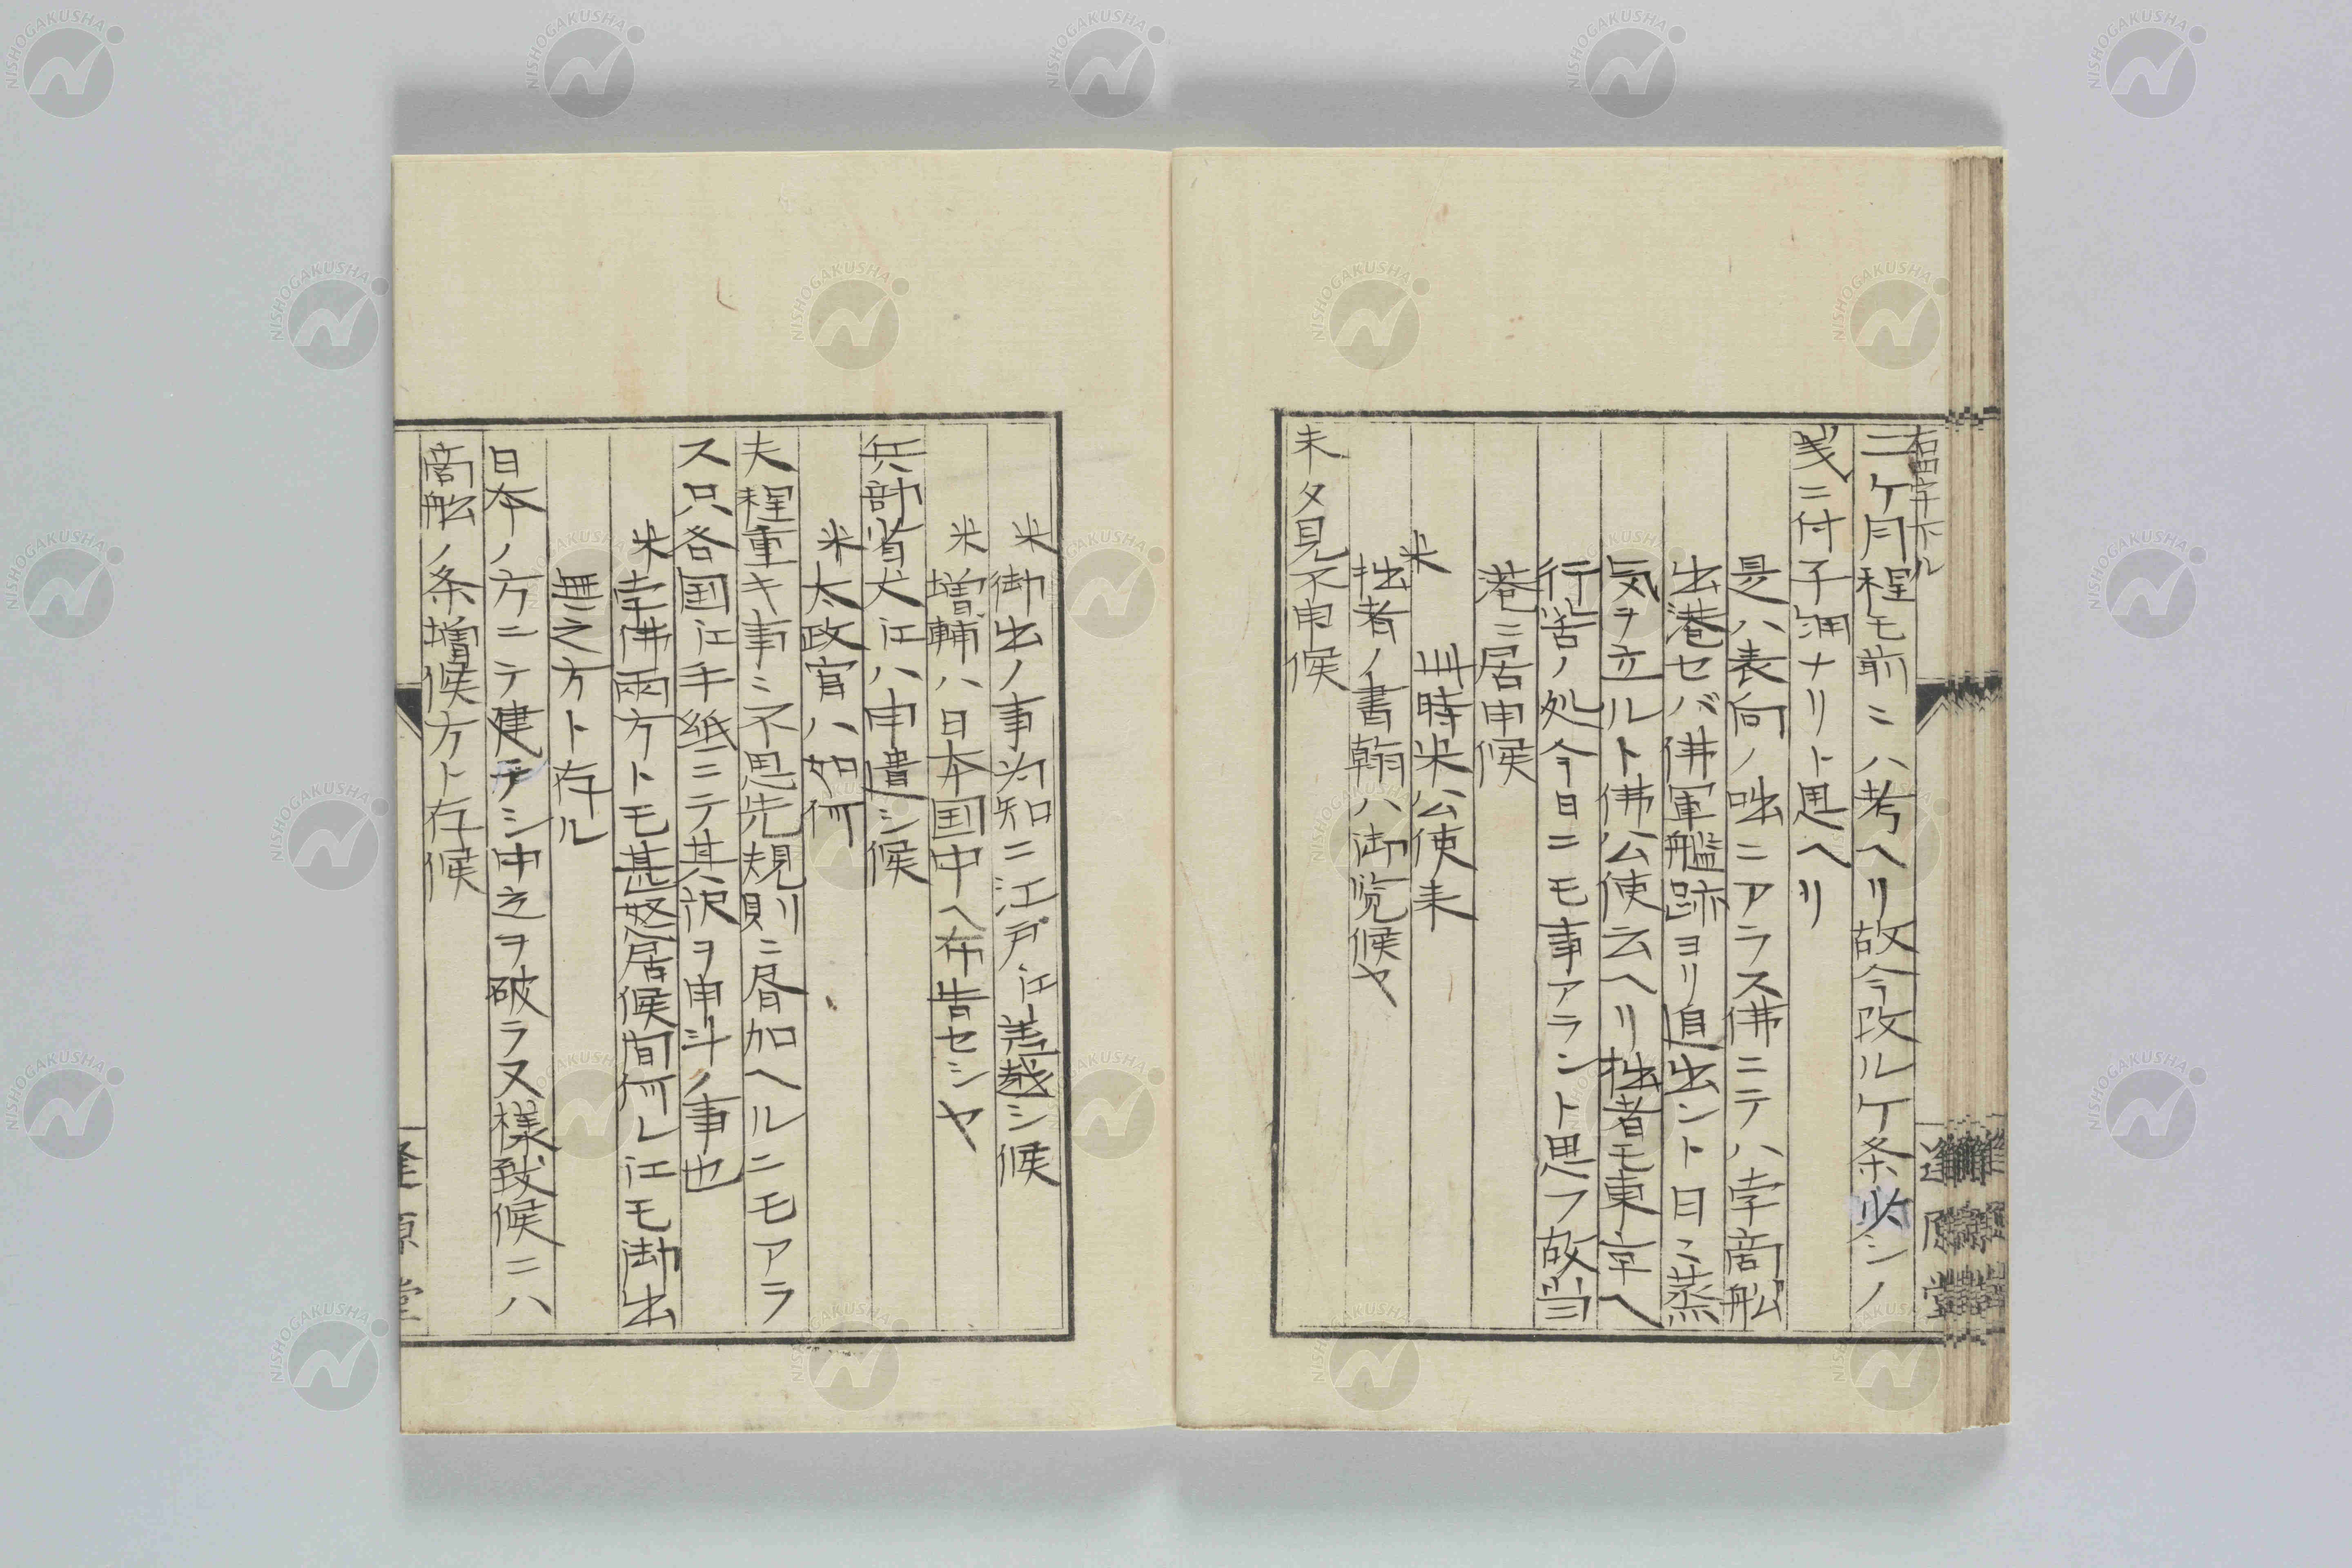 二ケ月程モ前ニハ考ヘリ故今改ルケ条少シノ
義ニ付子細ナリト思ヘリ
是ハ表向ノ咄ニアラス佛ニテハ孛商舩
出港セバ佛軍艦跡ヨリ追出ント日ニ蒸
気ヲ立ルト佛公使云ヘリ拙者モ東京ヘ
行筈ノ処今日ニモ事アラント思フ故当
港ニ居申候
米
此時米公使来
拙者ノ書翰ハ御覧候ヤ
未タ見不申候
米 御出ノ事為知ニ江戸江差越シ候
米 増輔ハ日本国中ヘ布告セシヤ
兵部省丈江ハ申遣シ候
米 太政官ハ如何
夫程重キ事ニ不思先規則ニ
加ヘルニモアラ
ス只各国江手紙ニテ其訳ヲ申斗ノ事也
米 孛佛兩方トモ甚怒居候間何レ江モ御出
無之方ト存ル
日本ノ方ニテ建テシ中立ヲ破ラヌ様致候ニハ
商舩ノ条増候方ト存候
逢原堂
NISHOGAKUSHA